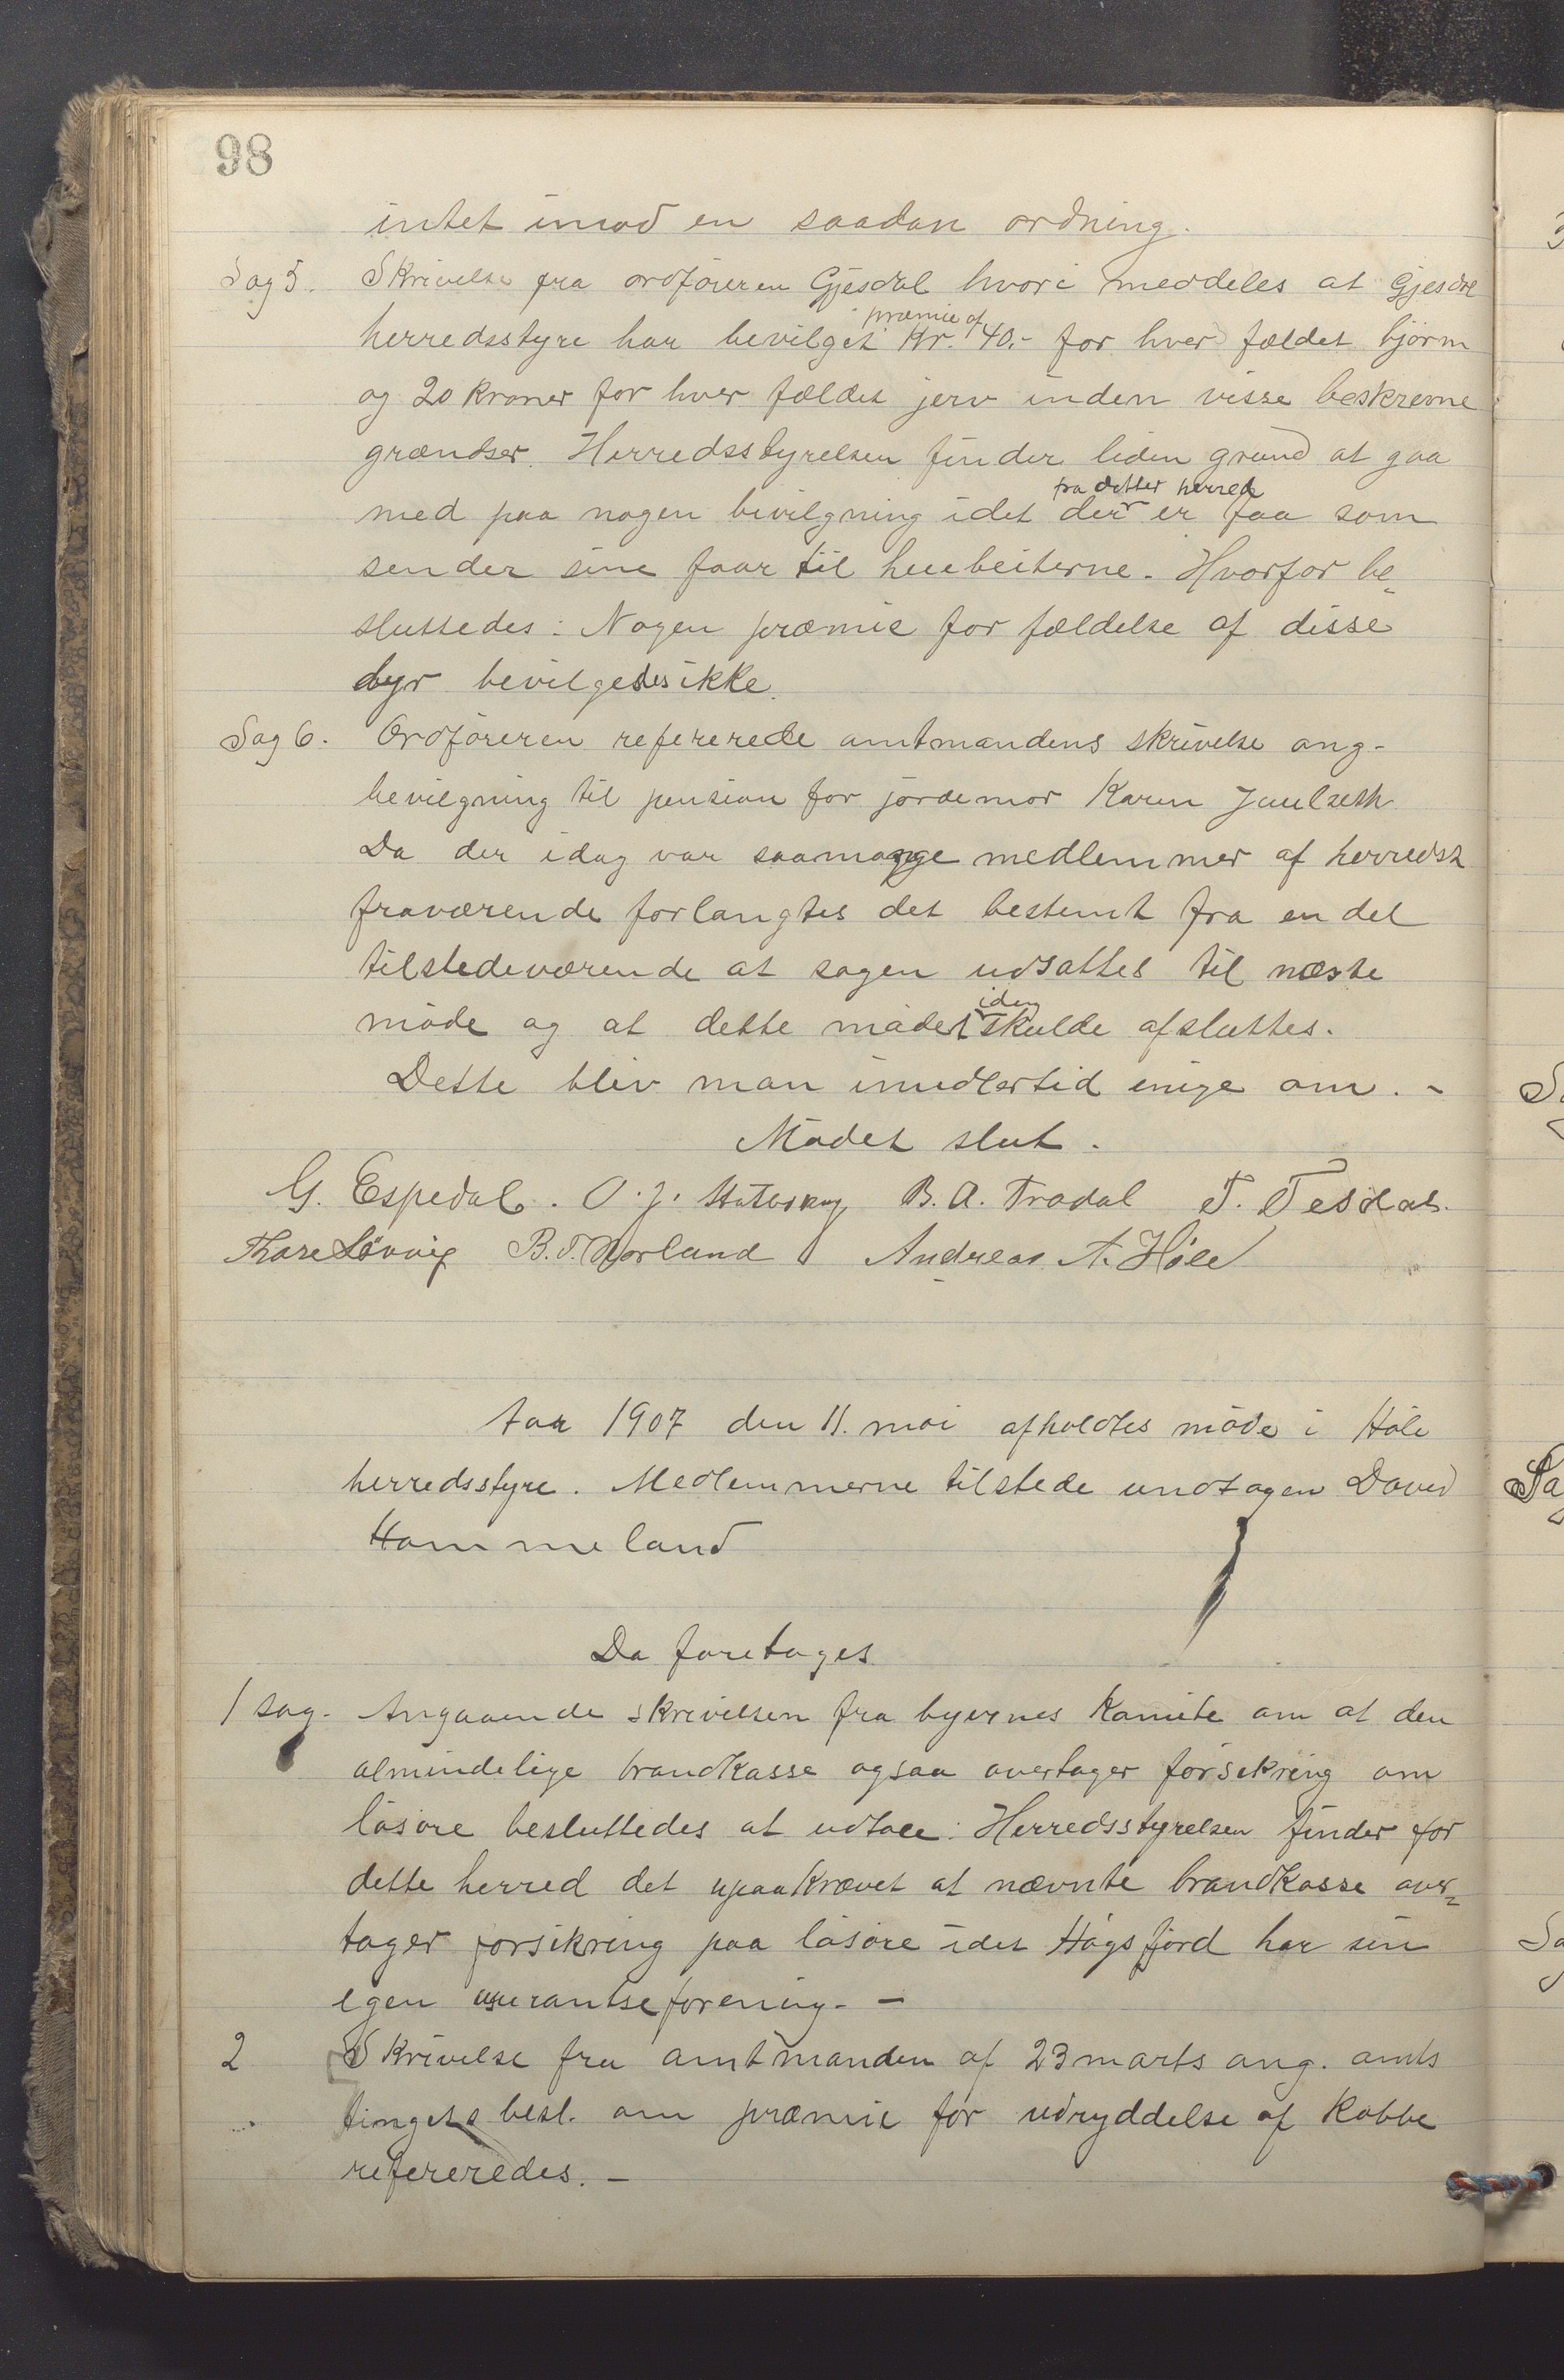 98
intet imod en saadan ordning.
Sag 5. Skrivelse fra ordføreren Gjesdal hvori meddeles at Gjesdal
præmie af
herredsstyre har bevilget Kr. 40.- for hver fældet bjørn
og 20 kroner for hver fældet jerv inden visse beskrevne
grændser. Herredsstyrelsen finder liden grund at gaa
fra dette herred
med paa nogen bevilgning idet der er faa som
sender sine faar til heiebeiterne. Hvorfor be-
sluttedes: Nogen præmie for fældelse af disse
dyr bevilgedes ikke.
Sag 6. Ordføreren refererede amtmandens skrivelse ang.
bevilgning til pension for jordemor Karen
Da der idag var saamange medlemmer af herredsst
fraværende forlangtes det bestemt fra en del
tilstedeværende at sagen udsattes til næste
iden
møde og at dette mødet skulde afsluttes.
Dette blev man imidlertid enige om. -
Mødet slut.
G. Espedal. O. J. B. A. Tradal T. Tesdal.
Thore Løvvig B. T. Norland Andreas A. Høle
Aar 1907 den 11. mai afholdtes møde i Høle
herredsstyre. Medlemmerne tilstede undtagen David
Hommeland
Da foretages
1 sag. Angaaende skrivelsen fra byernes Komite om at den
almindelige brandkasse ogsaa overtager forsikring om
løsøre besluttedes at udtale: Herredsstyrelsen finder for
dette herred det upaakrævet at nævnte brandkasse over-
tager forsikring paa løsøre idet Høgsfjord har sin
egen assurantseforening. -
2 Skrivelse fra amtmanden af 23 marts ang. amts
tingets besl. om præmie for udryddelse af Kobbe
refereredes. -